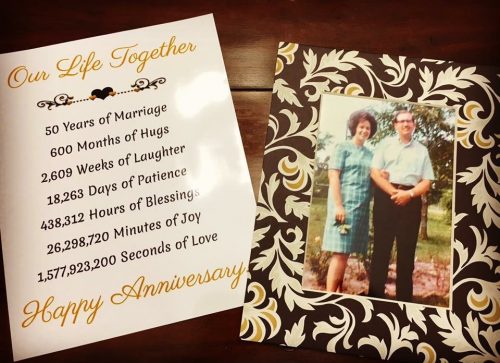 Our Life Together
50 Years of Marriage
600 Months of Hugs
2,609 Weeks of Laughter
18,263 Days of Patience
438,312 Hours of Blessings
26,298,720 Minutes of Joy
1,577,923,200 Seconds of Love
Happy Anniversary